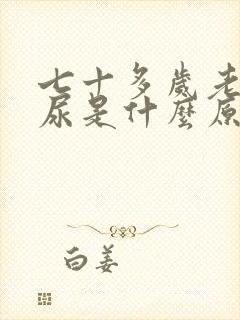 七十多歲老
尿是什麼原
白姜